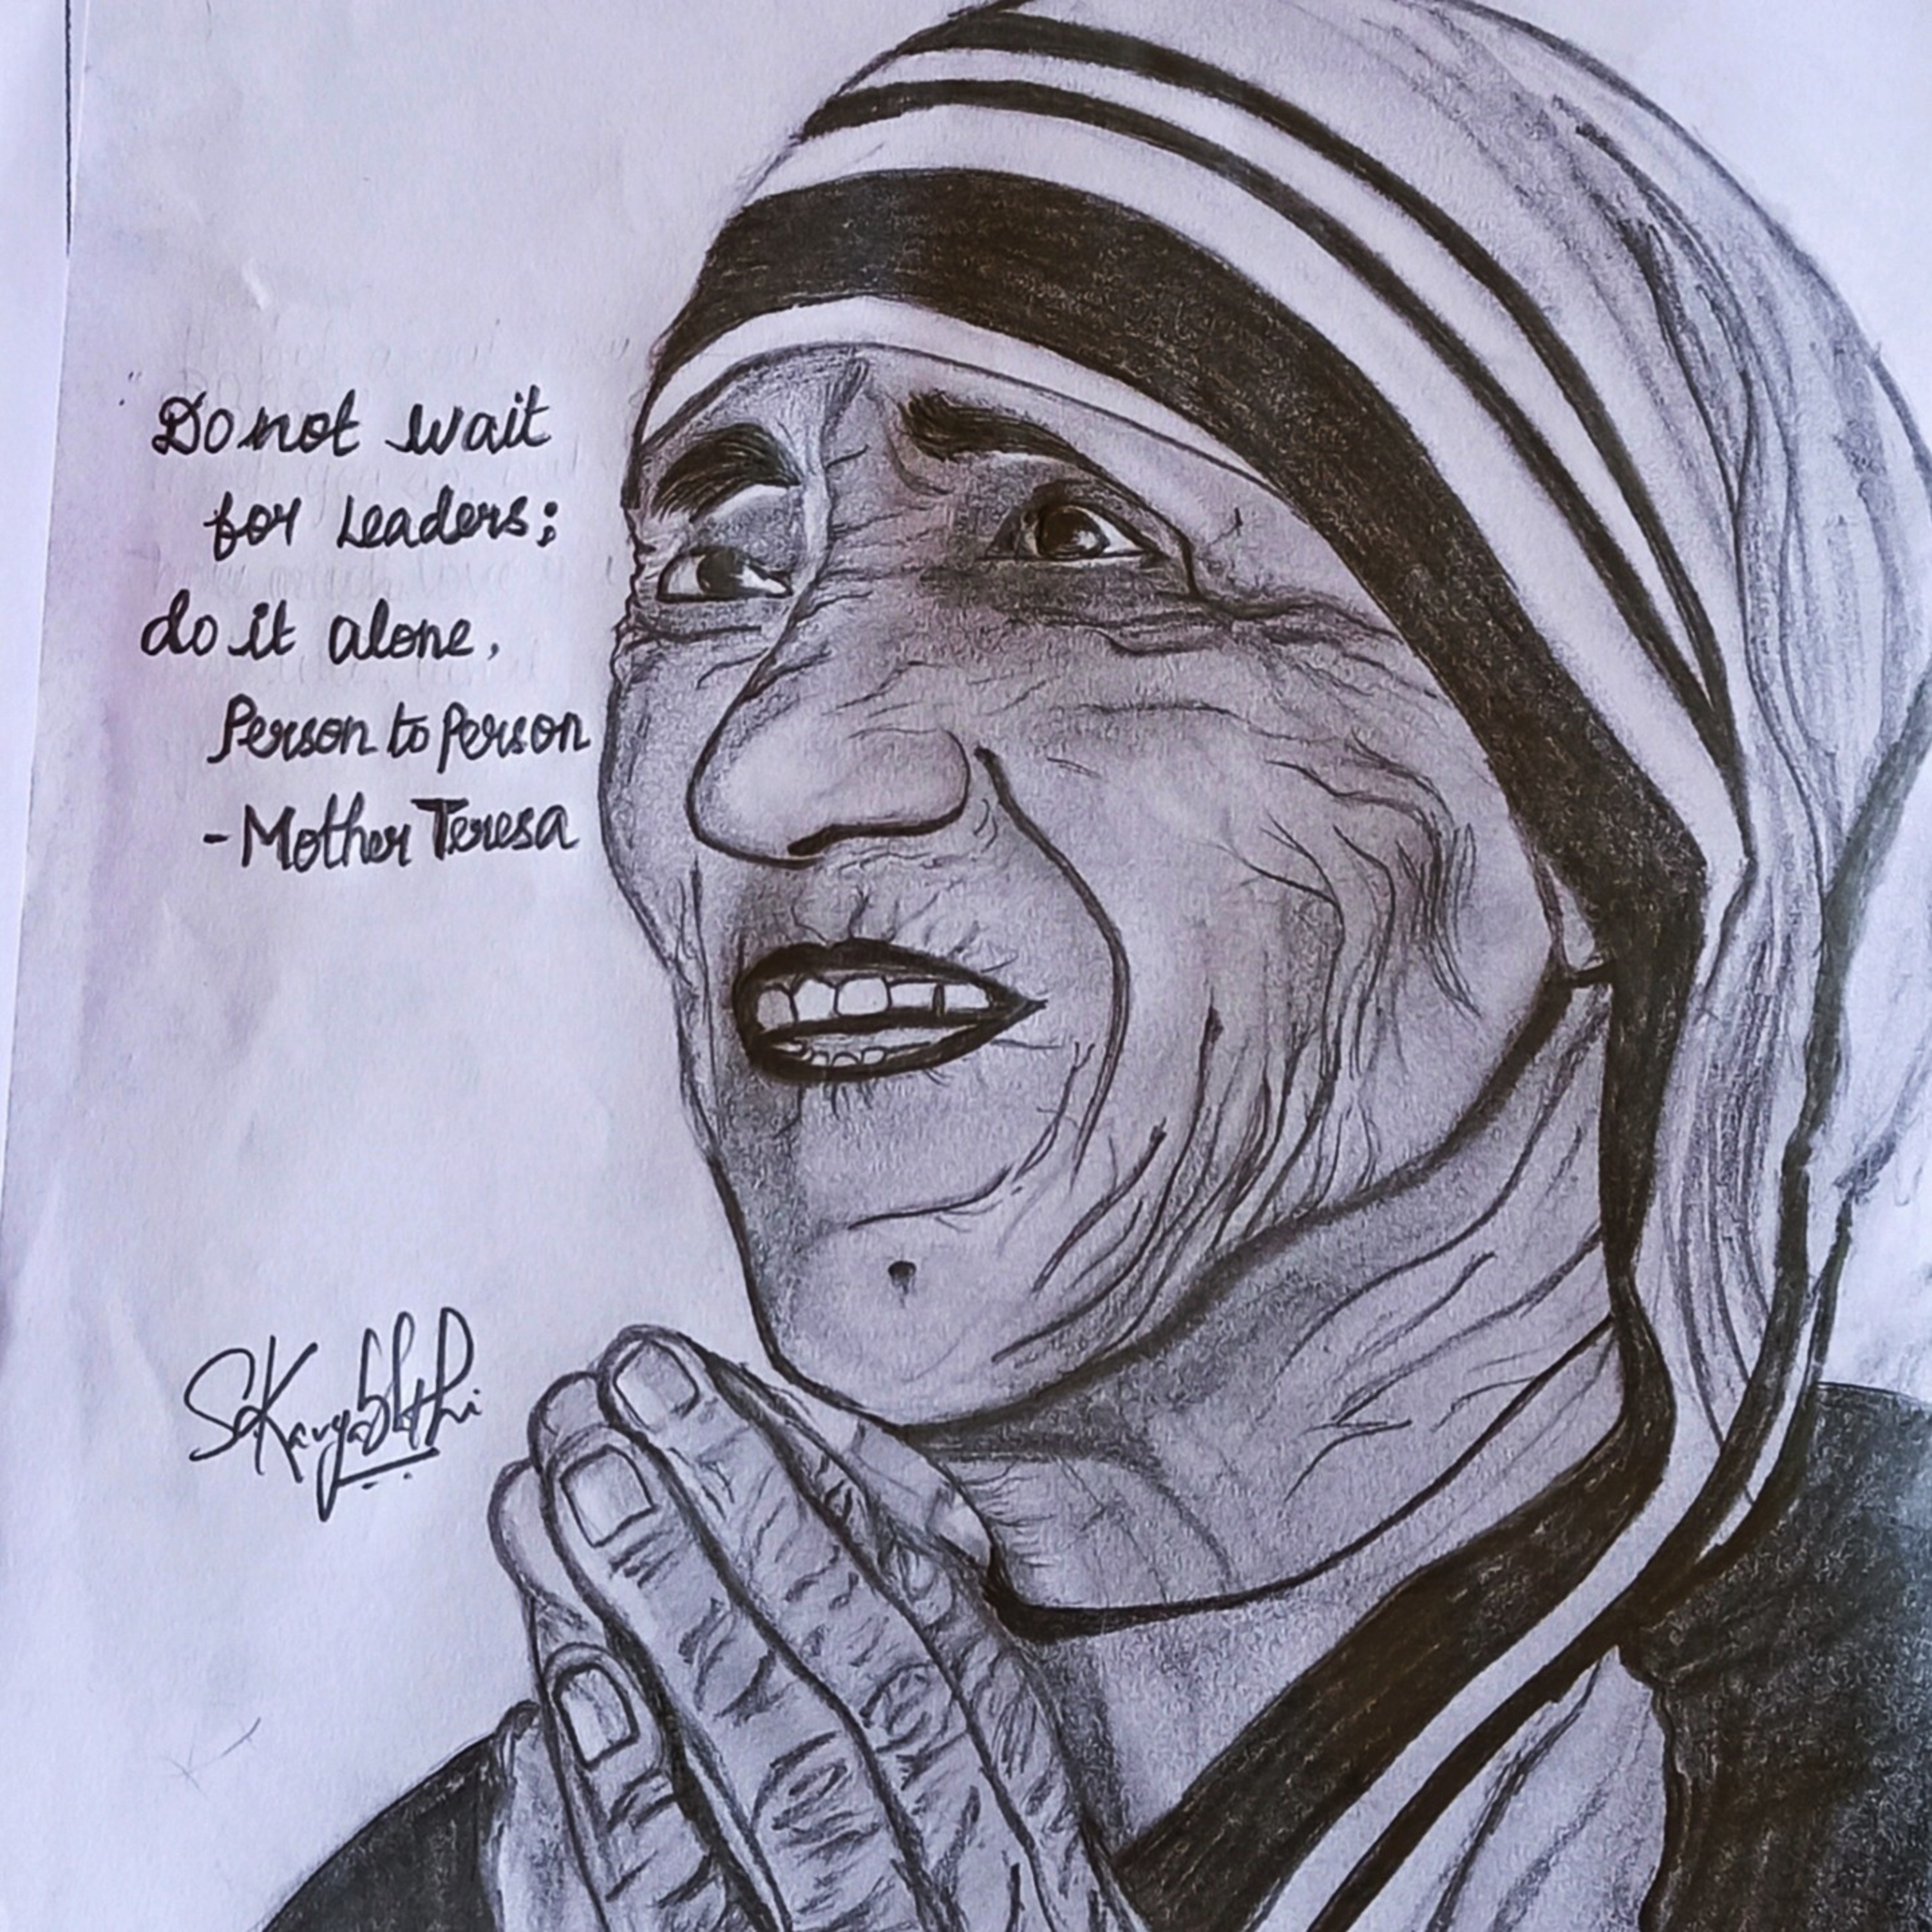 Do not wait
for Leaders;
do it alone,
Person to Person
- Mother Teresa